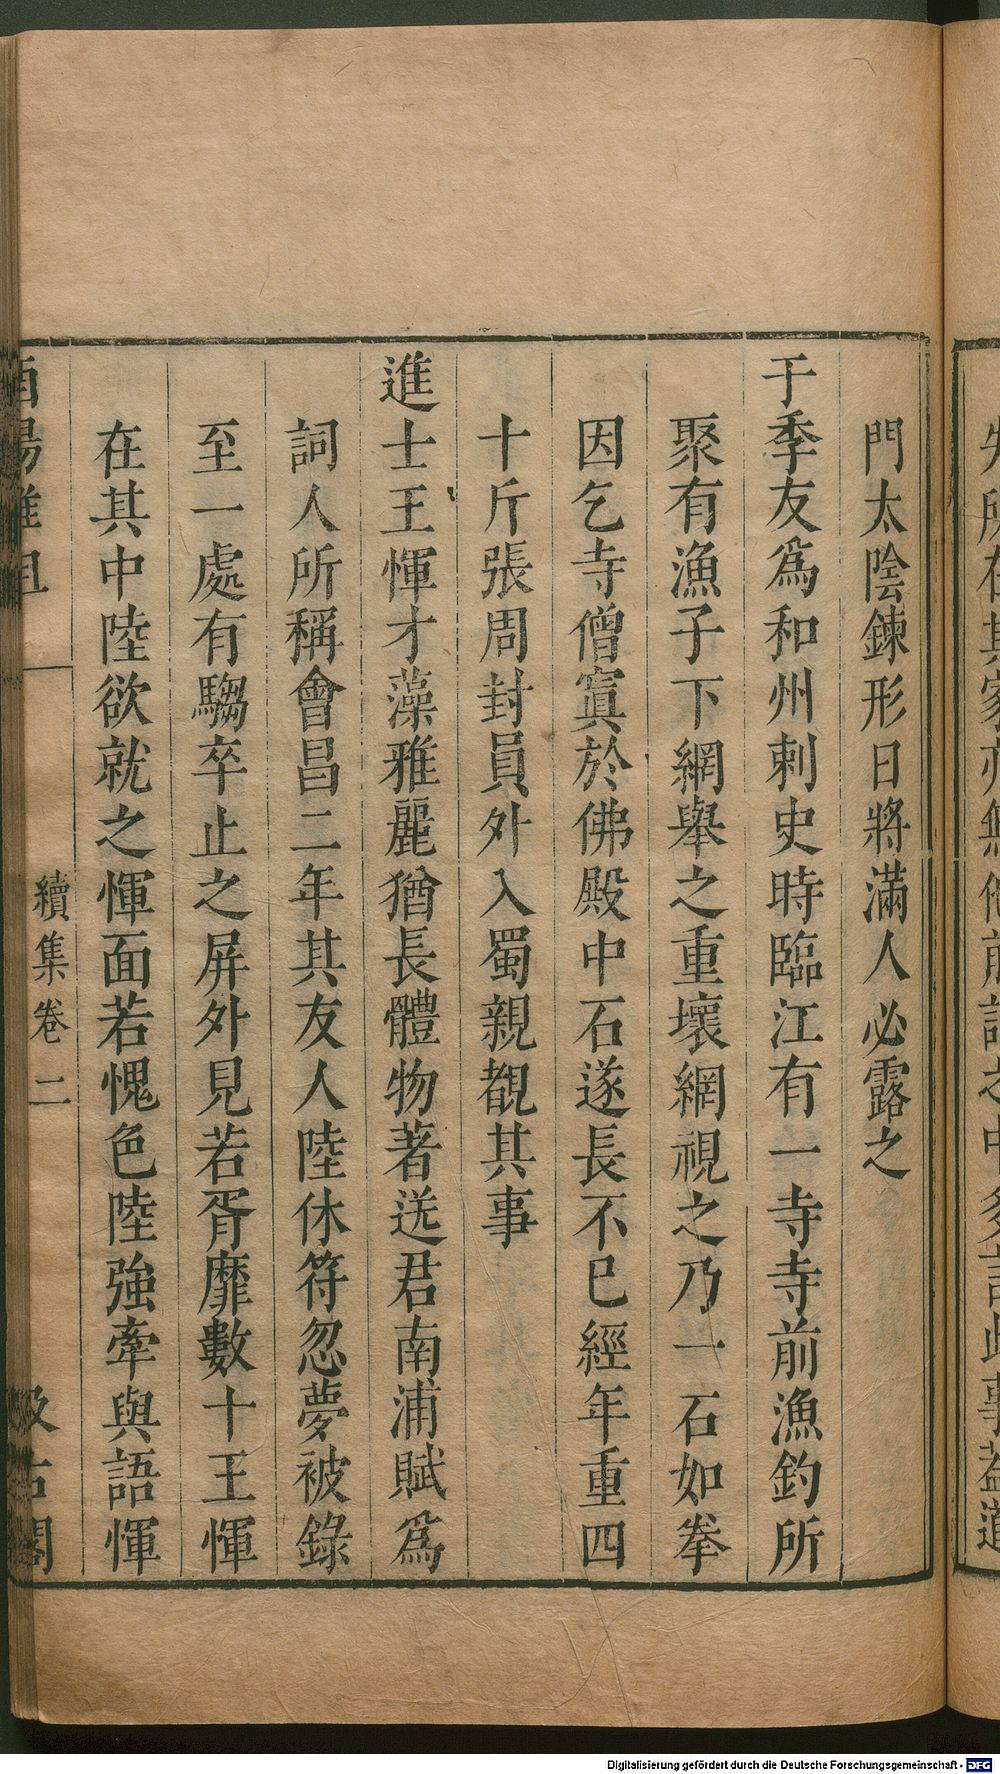 門太陰鍊形日將滿人必露之
于季友爲和州刺史時臨江有一寺寺前漁釣所
聚有漁子下網舉之重壞網視之乃一石如拳
因乞寺僧寘於佛殿中石遂長不已經年重四
十斤張周封員外入蜀親覩其事
進士王惲才藻雅麗猶長體物著送君南浦賦爲
詞人所稱會昌二年其友人陸休符忽夢被錄
至一處有騶卒止之屏外見若胥靡數十王惲
在其中陸欲就之惲面若愧色陸強牽與語惲
續集卷二
Digitalisierung gefördert durch die Deutsche Forschungsgemeinschaft - DFG